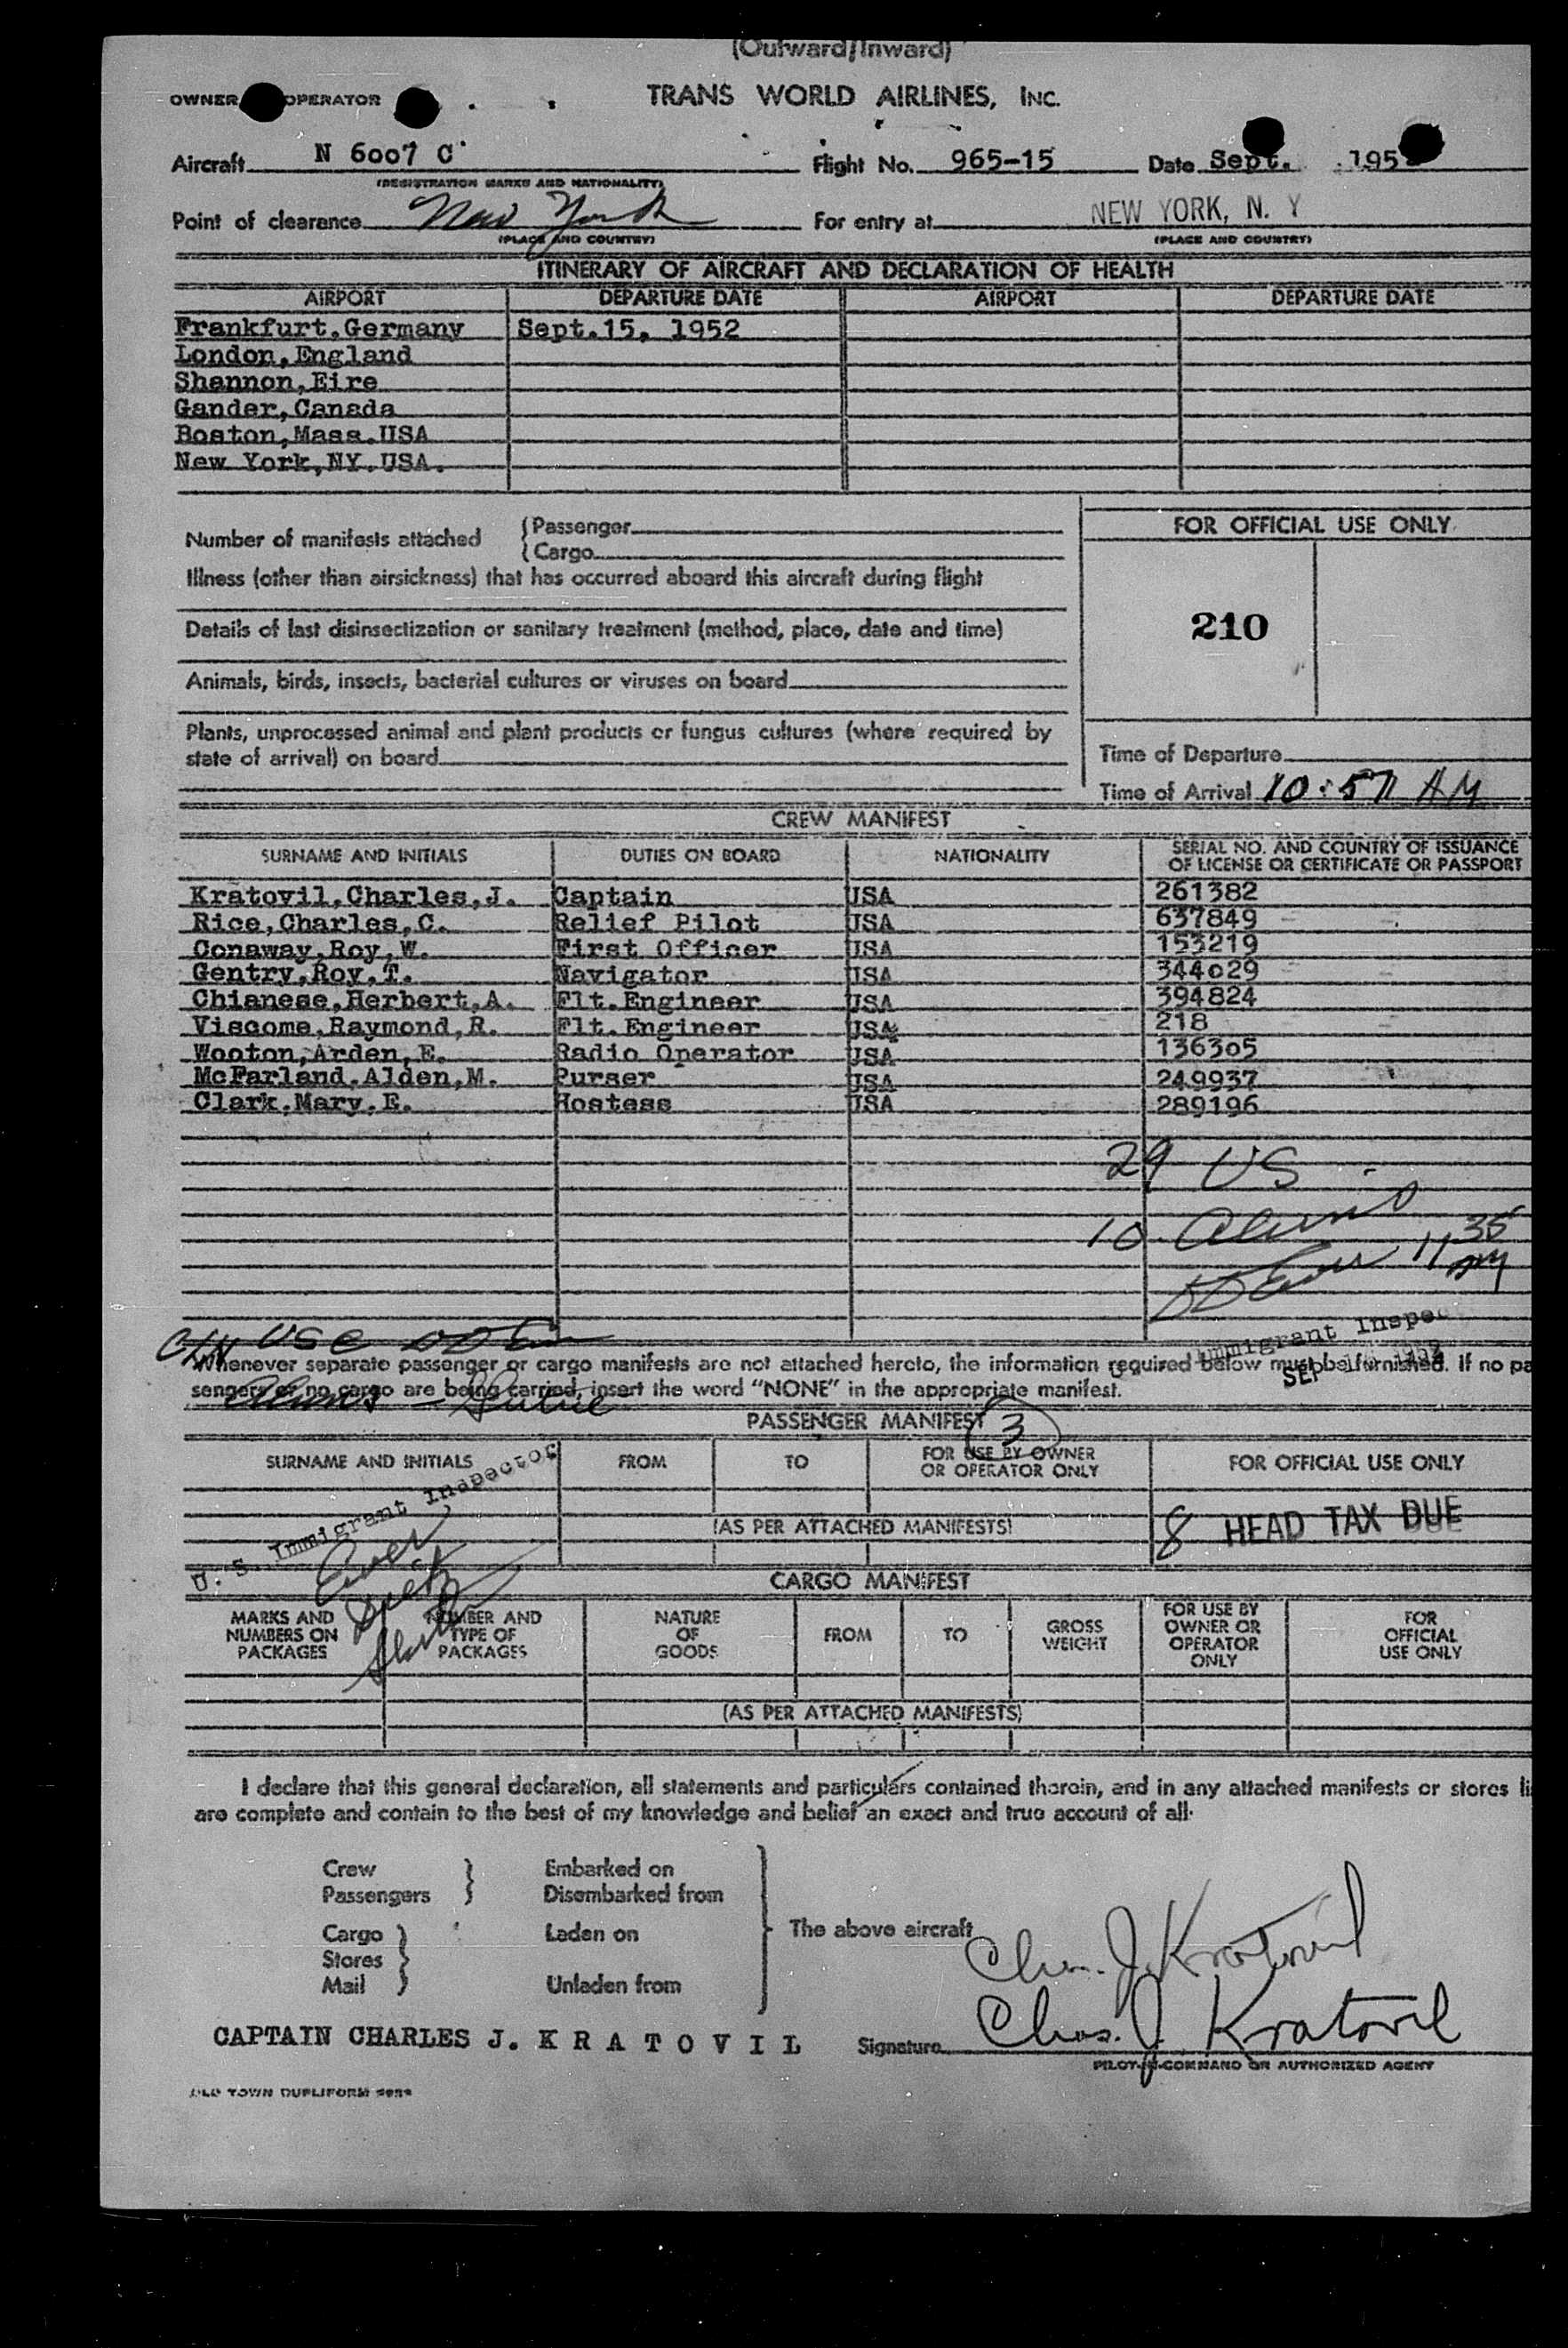 (Outward/Inward)
OWNER OPERATOR TRANS WORLD AIRLINES, INC.
Aircraft N 6007 C Flight No. 965-15 Date Sept. 195
(REGISTRATION MARKS AND NATIONALITY)
Point of clearance New York For entry at NEW YORK, N. Y
(PLACE AND COUNTRY) (PLACE AND COUNTRY)
ITINERARY OF AIRCRAFT AND DECLARATION OF HEALTH
AIRPORT DEPARTURE DATE AIRPORT DEPARTURE DATE
Frankfurt.Germany Sept.15, 1952
London,England
Shannon,Eire
Gander,Canada
Boston,Mass.USA
New York,NY.USA.
Number of manifests attached
Passenger
Cargo
FOR OFFICIAL USE ONLY
Illness (other than airsickness) that has occurred aboard this aircraft during flight
210
Details of last disinsectization or sanitary treatment (method, place, date and time)
Animals, birds, insects, bacterial cultures or viruses on board
Plants, unprocessed animal and plant products or fungus cultures (where required by
state of arrival) on board
Time of Departure
Time of Arrival 10:57 AM
CREW MANIFEST
SURNAME AND INITIALS DUTIES ON BOARD NATIONALITY SERIAL NO. AND COUNTRY OF ISSUANCE
OF LICENSE OR CERTIFICATE OR PASSPORT
Kratovil,Charles,J. Captain USA 261382
Rice,Charles,C. Relief Pilot USA 637849
Conaway,Roy,W. First Officer USA 153219
Gentry,Roy,T. Navigator USA 344029
Chianese,Herbert,A. Flt.Engineer USA 394824
Viscome,Raymond,R. Flt.Engineer USA 218
Wooton,Arden,E. Radio Operator USA 136305
McFarland,Alden,M. Purser USA 249937
Clark,Mary,E. Hostess USA 289196
29 US
10 Aliens
11 35 AM
Immigrant Inspec
SEP 1952
USC
Whenever separate passenger or cargo manifests are not attached hereto, the information required below must be furnished. If no pa
sengers or no cargo are being carried, insert the word "NONE" in the appropriate manifest.
Aliens
PASSENGER MANIFEST 3
SURNAME AND INITIALS FROM TO FOR USE BY OWNER
OR OPERATOR ONLY
FOR OFFICIAL USE ONLY
U. S. Immigrant Inspector
(AS PER ATTACHED MANIFESTS)
8 HEAD TAX DUE
CARGO MANIFEST
MARKS AND
NUMBERS ON
PACKAGES
NUMBER AND
TYPE OF
PACKAGES
NATURE
OF
GOODS
FROM
TO
GROSS
WEIGHT
FOR USE BY
OWNER OR
OPERATOR
ONLY
FOR
OFFICIAL
USE ONLY
(AS PER ATTACHED MANIFESTS)
I declare that this general declaration, all statements and particulars contained therein, and in any attached manifests or stores li
are complete and contain to the best of my knowledge and belief an exact and true account of all.
Crew Embarked on
Passengers Disembarked from
Cargo Laden on
Stores
Mail Unladen from
The above aircraft
Chas. J. Kratovil
Chas. J. Kratovil
CAPTAIN CHARLES J. K R A T O V I L Signature
PILOT-IN-COMMAND OR AUTHORIZED AGENT
OLD TOWN DUPLIFORM